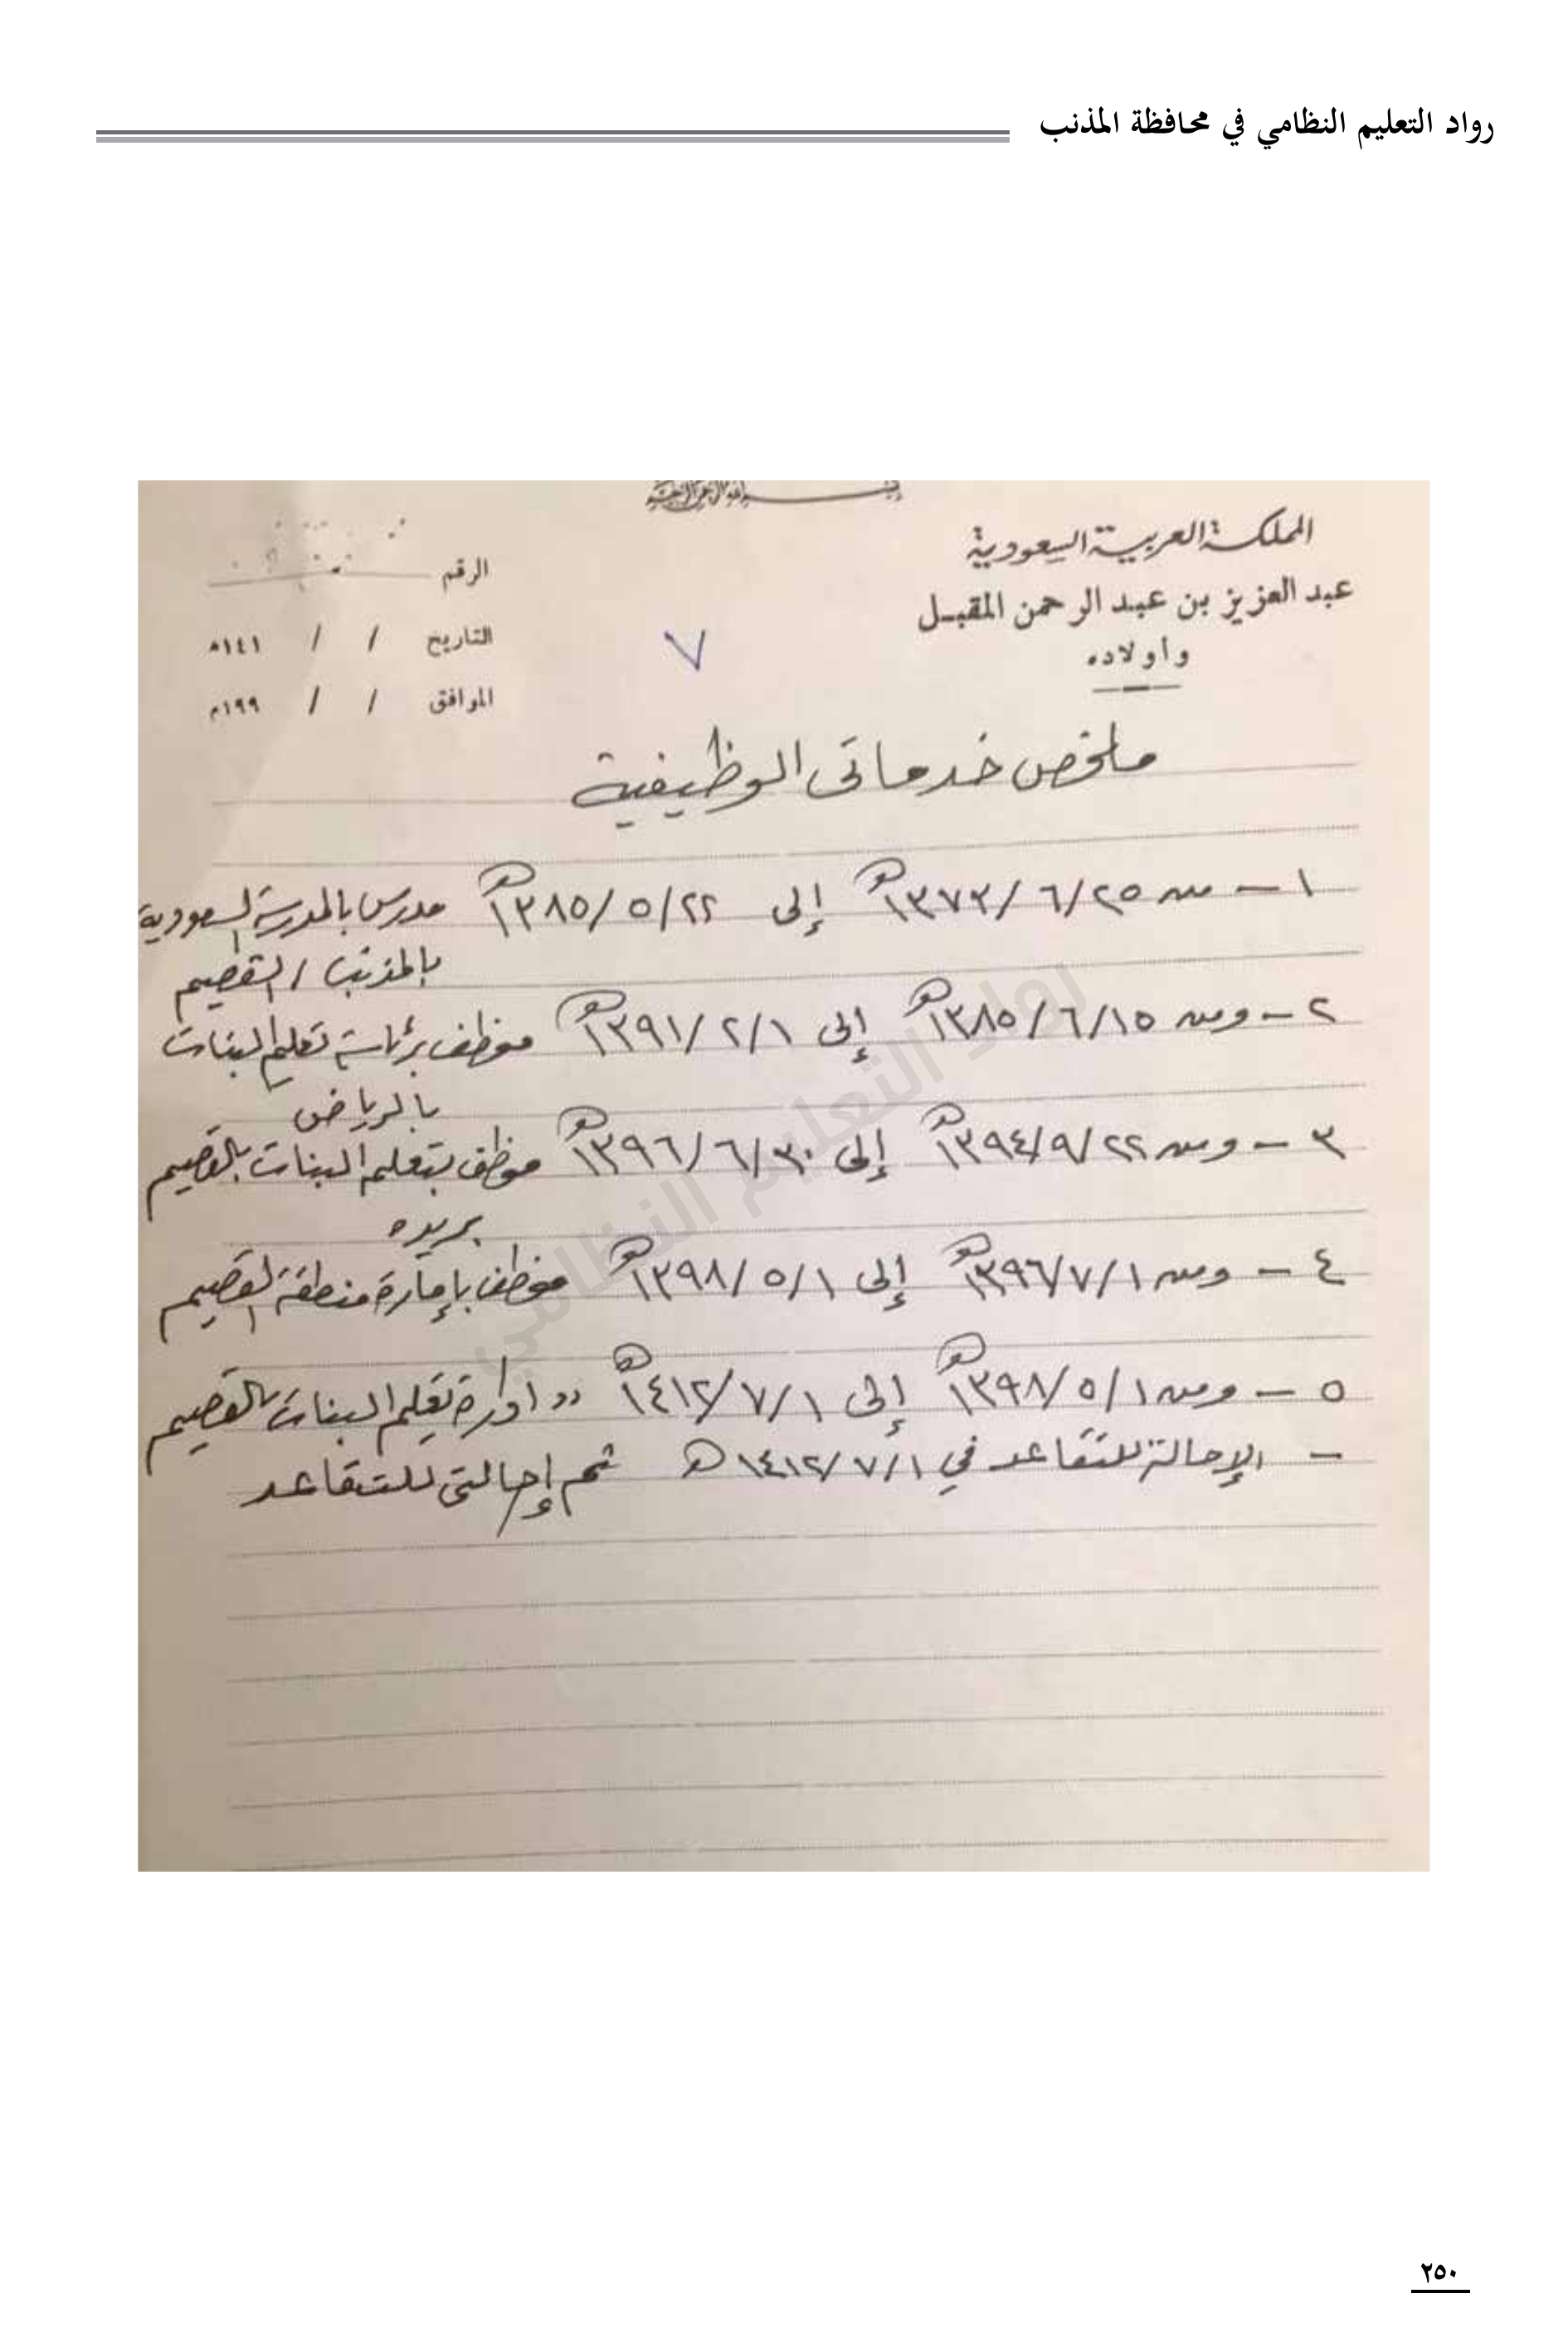 رواد التعليم النظامي في محافظة المذنب
بسم الله الرحمن الرحيم
المملكة العربية السعودية
عبد العزيز بن عبد الرحمن المقبل
وأولاده
الرقم
التاريخ / / ١٤١هـ
الموافق / / ١٩٩م
٧
ملخص خدماتى الوظيفية
١ – من ٢٥/٦/١٣٧٣هـ إلى ٢٢/٥/١٣٨٥هـ مدرس بالمدرسة السعودية
بالمذنب / القصيم
٢ – ومن ١٥/٦/١٣٨٥هـ إلى ١/٢/١٣٩١هـ موظف برئاسة تعليم البنات
بالرياض
٣ – ومن ٢٢/٩/١٣٩٤هـ إلى ٣٠/٦/١٣٩٦هـ موظف بتعليم البنات بالقصيم
بريده
٤ – ومن ١/٧/١٣٩٦هـ إلى ١/٥/١٣٩٨هـ موظف بإمارة منطقة القصيم
٥ – ومن ١/٥/١٣٩٨هـ إلى ١/٧/١٤١٢هـ ״ ادارة تعليم البنات بالقصيم
– الإحالة للتقاعد في ١/٧/١٤١٢هـ ثم إحالتى للتقاعد
رواد التعليم النظامي
٢٥٠